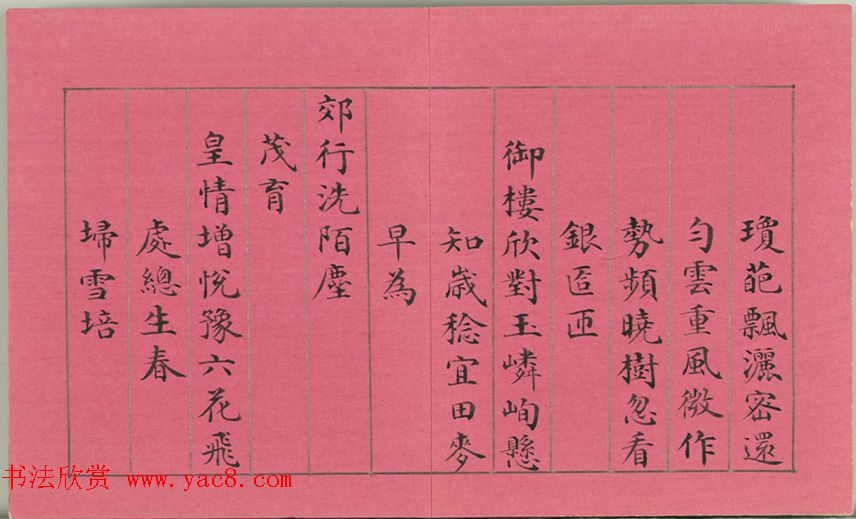 瓊葩飄灑密還
勻雲重風微作
勢頻曉樹忽看
銀匼匝
御樓欣對玉嶙峋懸
知歲稔宜田麥
早為
郊行洗陌塵
茂育
皇情增悅豫六花飛
處總生春
埽雪培
书法欣赏 www.yac8.com